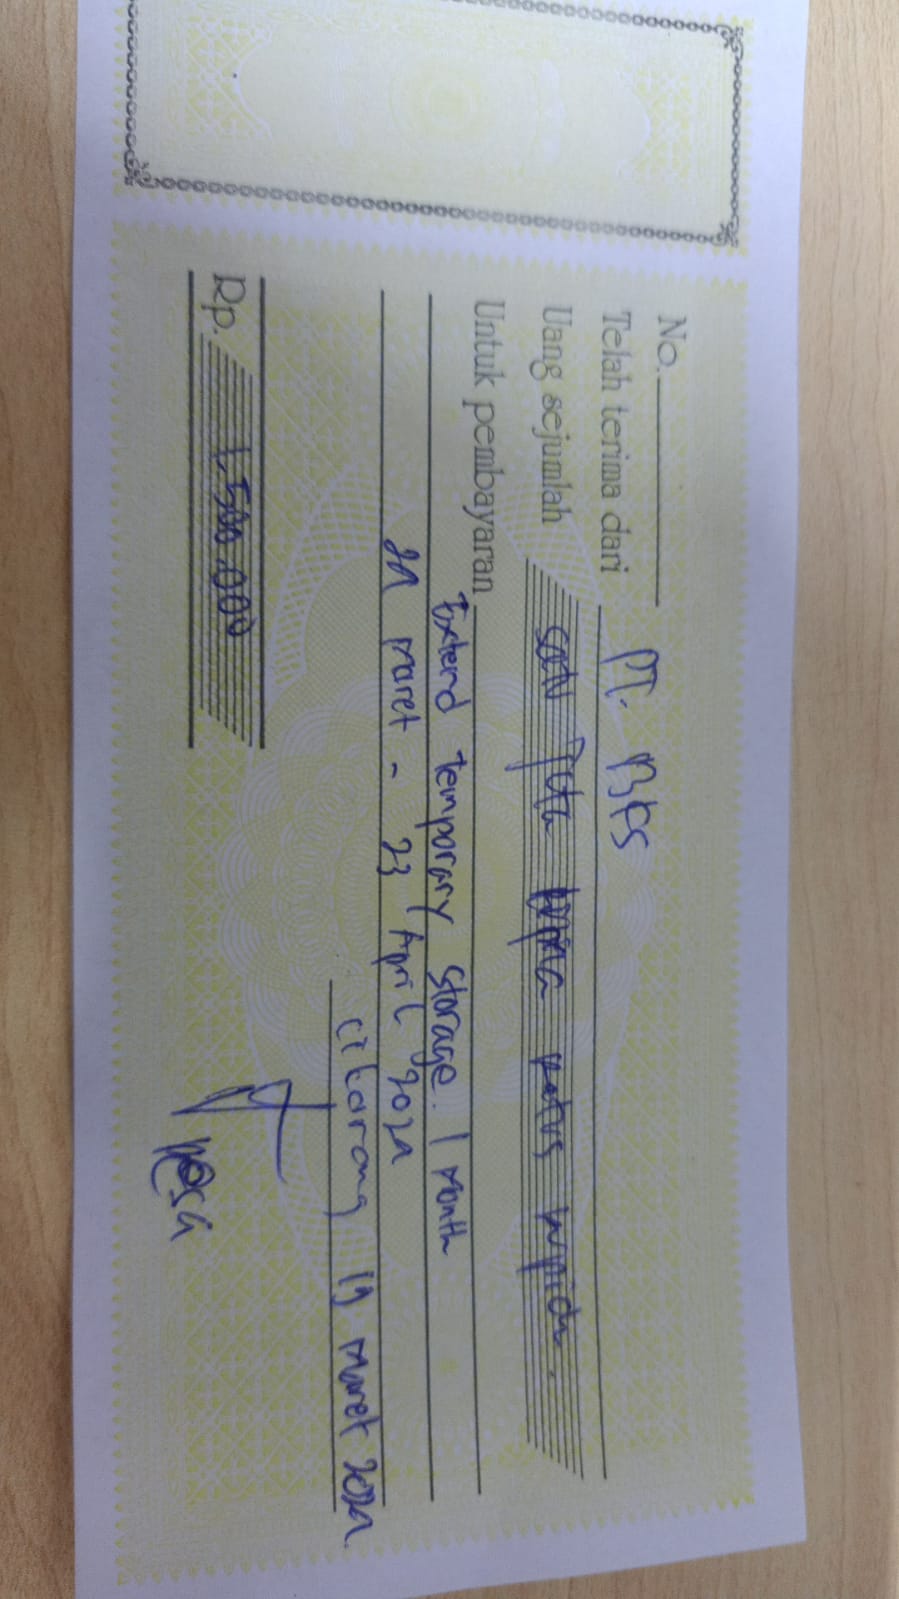 No.
Telah terima dari PT. BFS
Uang sejumlah satu juta lima ratus rupiah.
Untuk pembayaran
Extend temporary storage. 1 Month
24 maret - 23 April 2024
Cikarang 19 maret 2024.
Rp. 1.500.000
Rosa